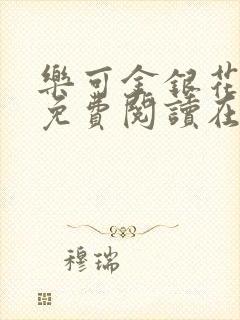 樂可金銀花
免費閱讀在
穆瑞